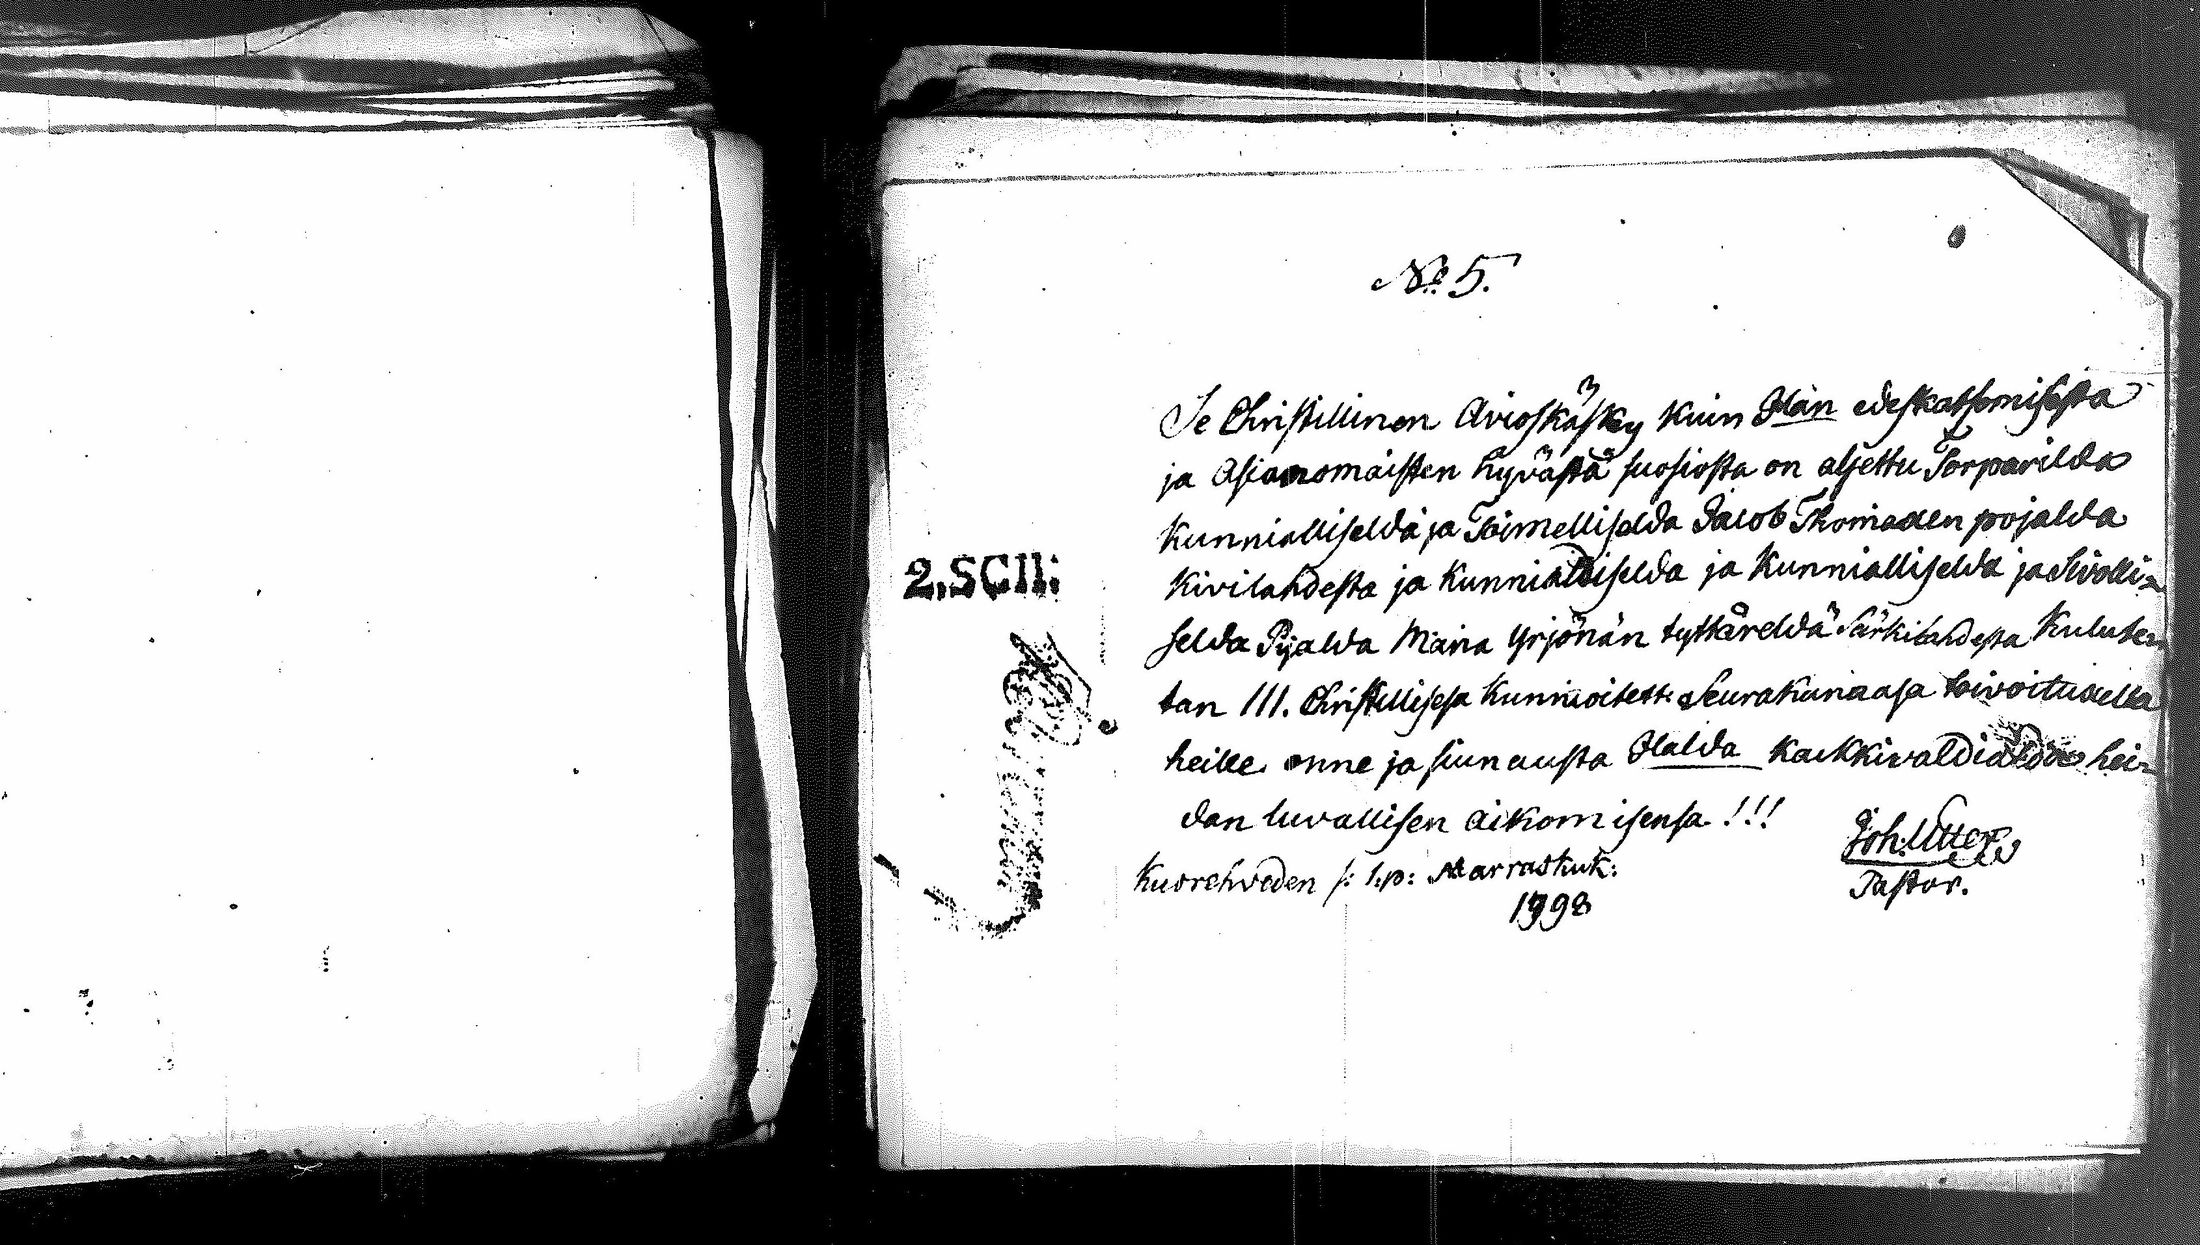 No 5.
Se Christillinen Avioskäsky kuin Hän edeskatsomisesta
ja Asianomaisten hyvästä suosiosta on aljettu Torparilda
Kunnialliselda ja Toimelliselda Jacob Thomaxen pojalda
Kivilahdesta ja Kunnialliselda ja Kunnialliselda ja Sivolli-
selda Pijalda Maria Yrjönän tyttäreldä Särkilahdesta Kulute-
tan III. Christillisesa Kunnioitett. Seurakunnasa toivoituxella
heille onne ja siunausta Halda kaikkivaldialda hei-
dän luvallisen aikomisensa !!!
2.SCIL:
Kuorehveden /: 1.p: Marraskuk:
1798
Joh. Utter
Pastor.